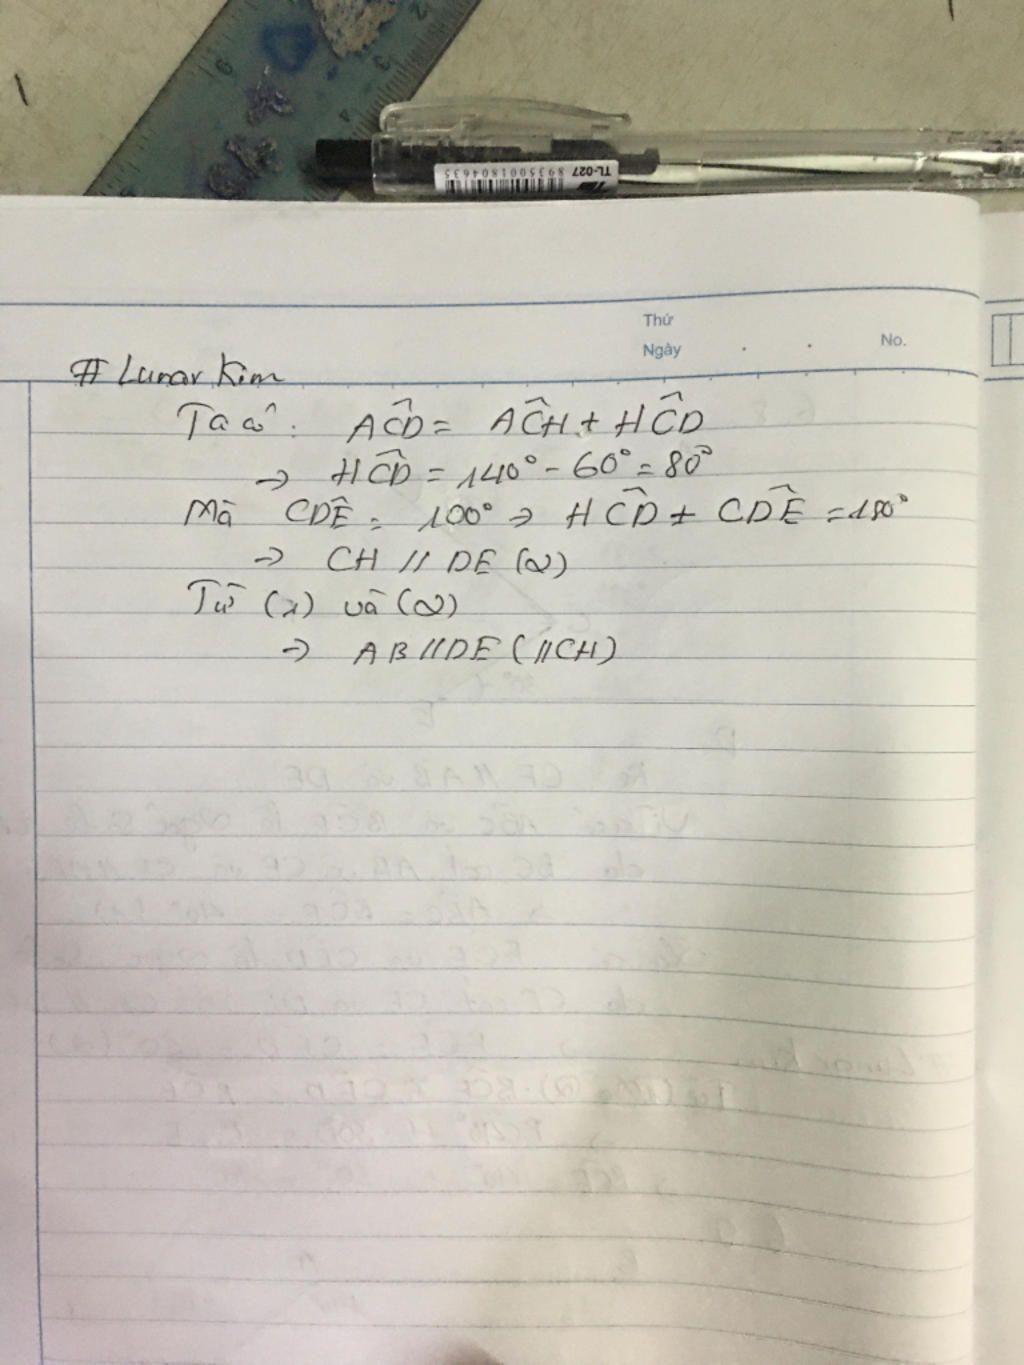 TL-027
8935001804635
Thứ
Ngày . . No.
# Lunar Kim
Ta có: AĈD = AĈH + HĈD
→ HĈD = 140° - 60° = 80°
Mà CD̂E = 100° → HĈD + CD̂E = 180°
→ CH // DE (2)
Từ (1) và (2)
→ AB // DE (// CH)